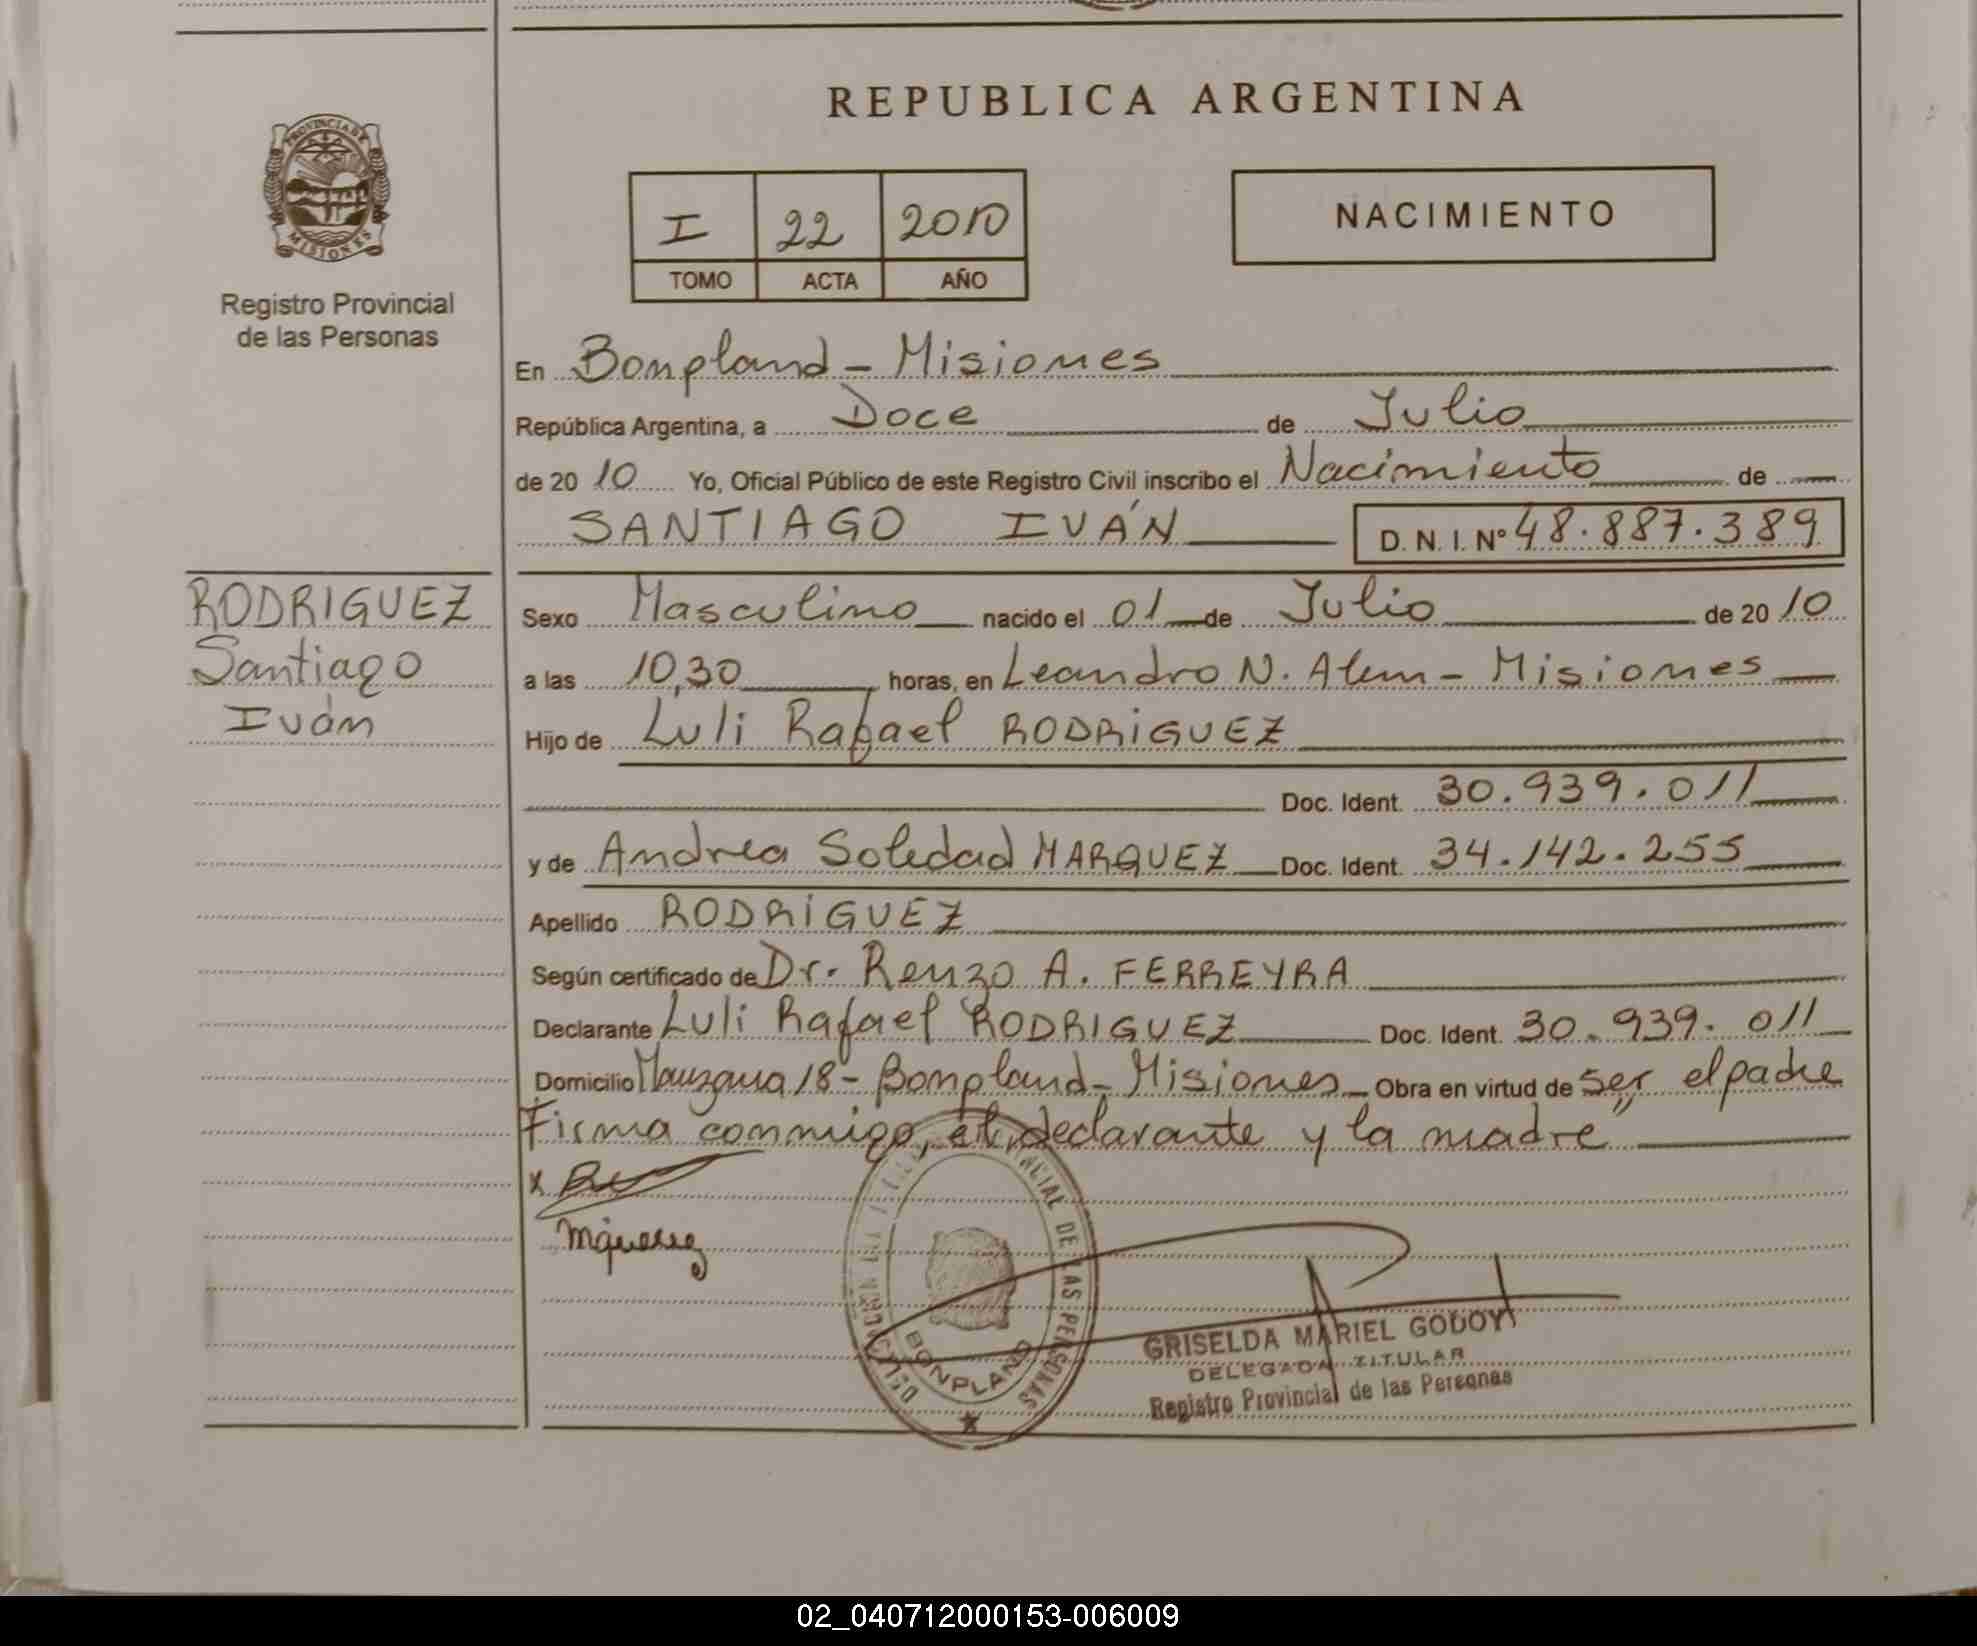 REPUBLICA ARGENTINA
PROVINCIA DE
MISIONES
Registro Provincial
de las Personas
I 22 2010
TOMO ACTA AÑO
NACIMIENTO
En Bonpland - Misiones
República Argentina, a Doce de Julio
de 2010 Yo, Oficial Público de este Registro Civil inscribo el Nacimiento de
SANTIAGO IVÁN D.N.I. Nº 48.887.389
RODRIGUEZ
Santiago
Iván
Sexo Masculino nacido el 01 de Julio de 2010
a las 10,30 horas, en Leandro N. Alem - Misiones
Hijo de Luli Rafael RODRIGUEZ
Doc. Ident. 30.939.011
y de Andrea Soledad MARQUEZ Doc. Ident. 34.142.255
Apellido RODRIGUEZ
Según certificado de Dr. Renzo A. FERREYRA
Declarante Luli Rafael RODRIGUEZ Doc. Ident. 30.939.011
Domicilio Manzana 18 - Bonpland - Misiones Obra en virtud de ser el padre
Firma conmigo, el declarante y la madre
x
DE LAS PERSONAS
BONPLAND
GRISELDA MARIEL GODOY
DELEGADA TITULAR
Registro Provincial de las Personas
02_040712000153-006009